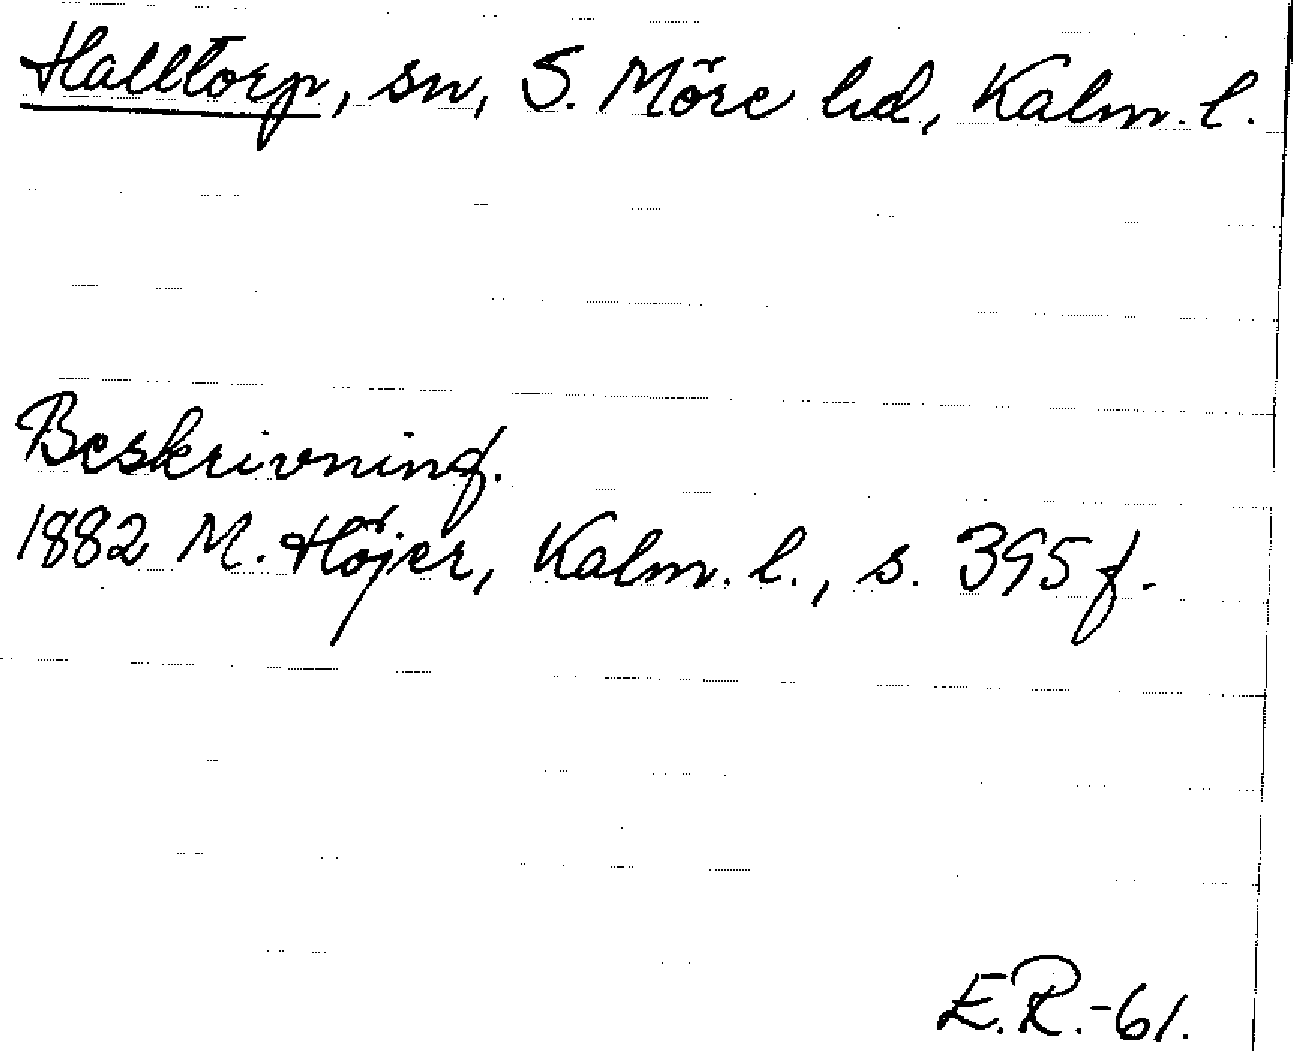 Halltorp, sn, S. Möre hd, Kalm. l.
Beskrivning.
1882 M. Höjer, Kalm. l., s. 395 f.
E.R.-61.